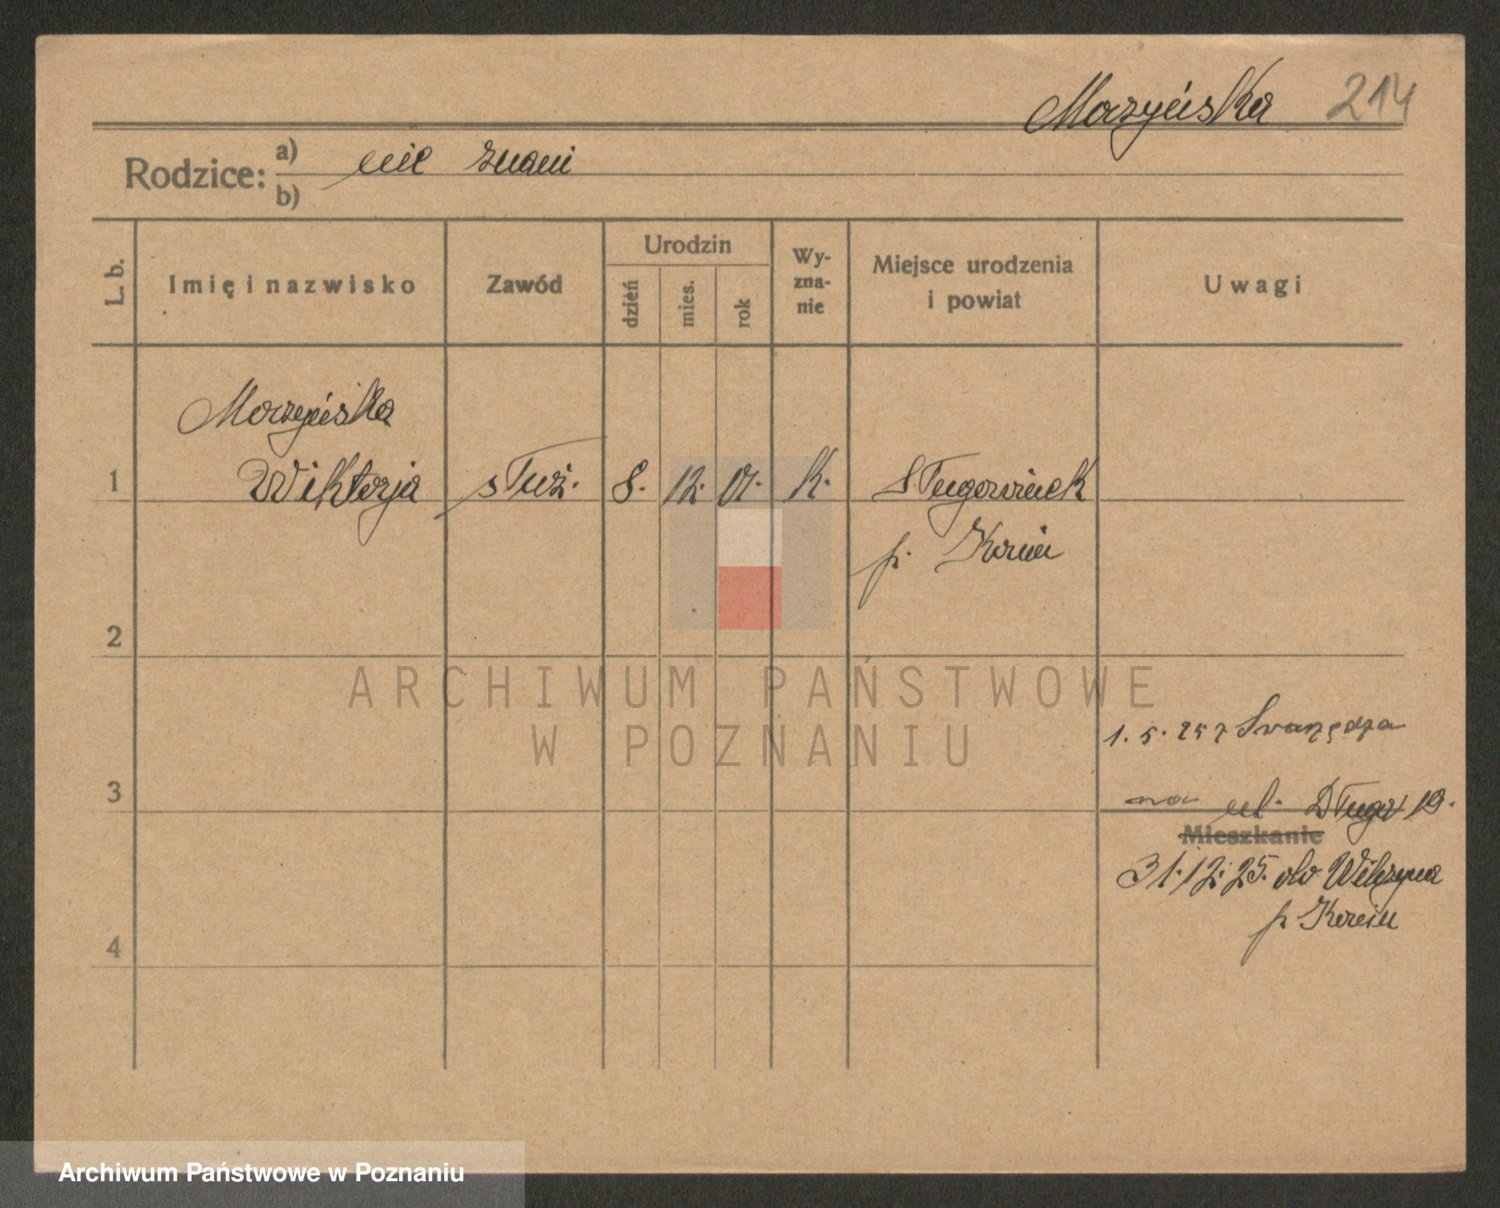 Morzyńska 214
Rodzice:
a) nie znani
b)
L. b.
Imię i nazwisko
Zawód
Urodzin
dzień
mies.
rok
Wy-
zna-
nie
Miejsce urodzenia
i powiat
Uwagi
Morzyńska
1 Wiktorja służ. 8. 12. 01. k. Sługocinek
p. Konin
2
ARCHIWUM PAŃSTWOWE
W POZNANIU
1. 5. 25 z Swarzędza
3
na ul. Długa 19.
Mieszkanie
31. 12. 25. do
p. Konin
4
Archiwum Państwowe w Poznaniu